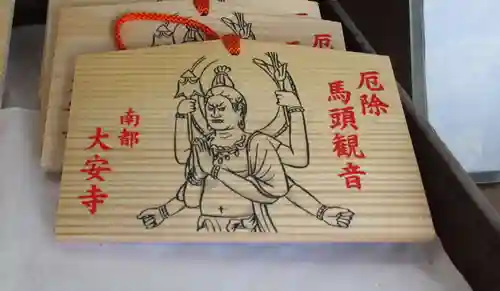 厄除
馬頭観音
南都
大安寺
厄